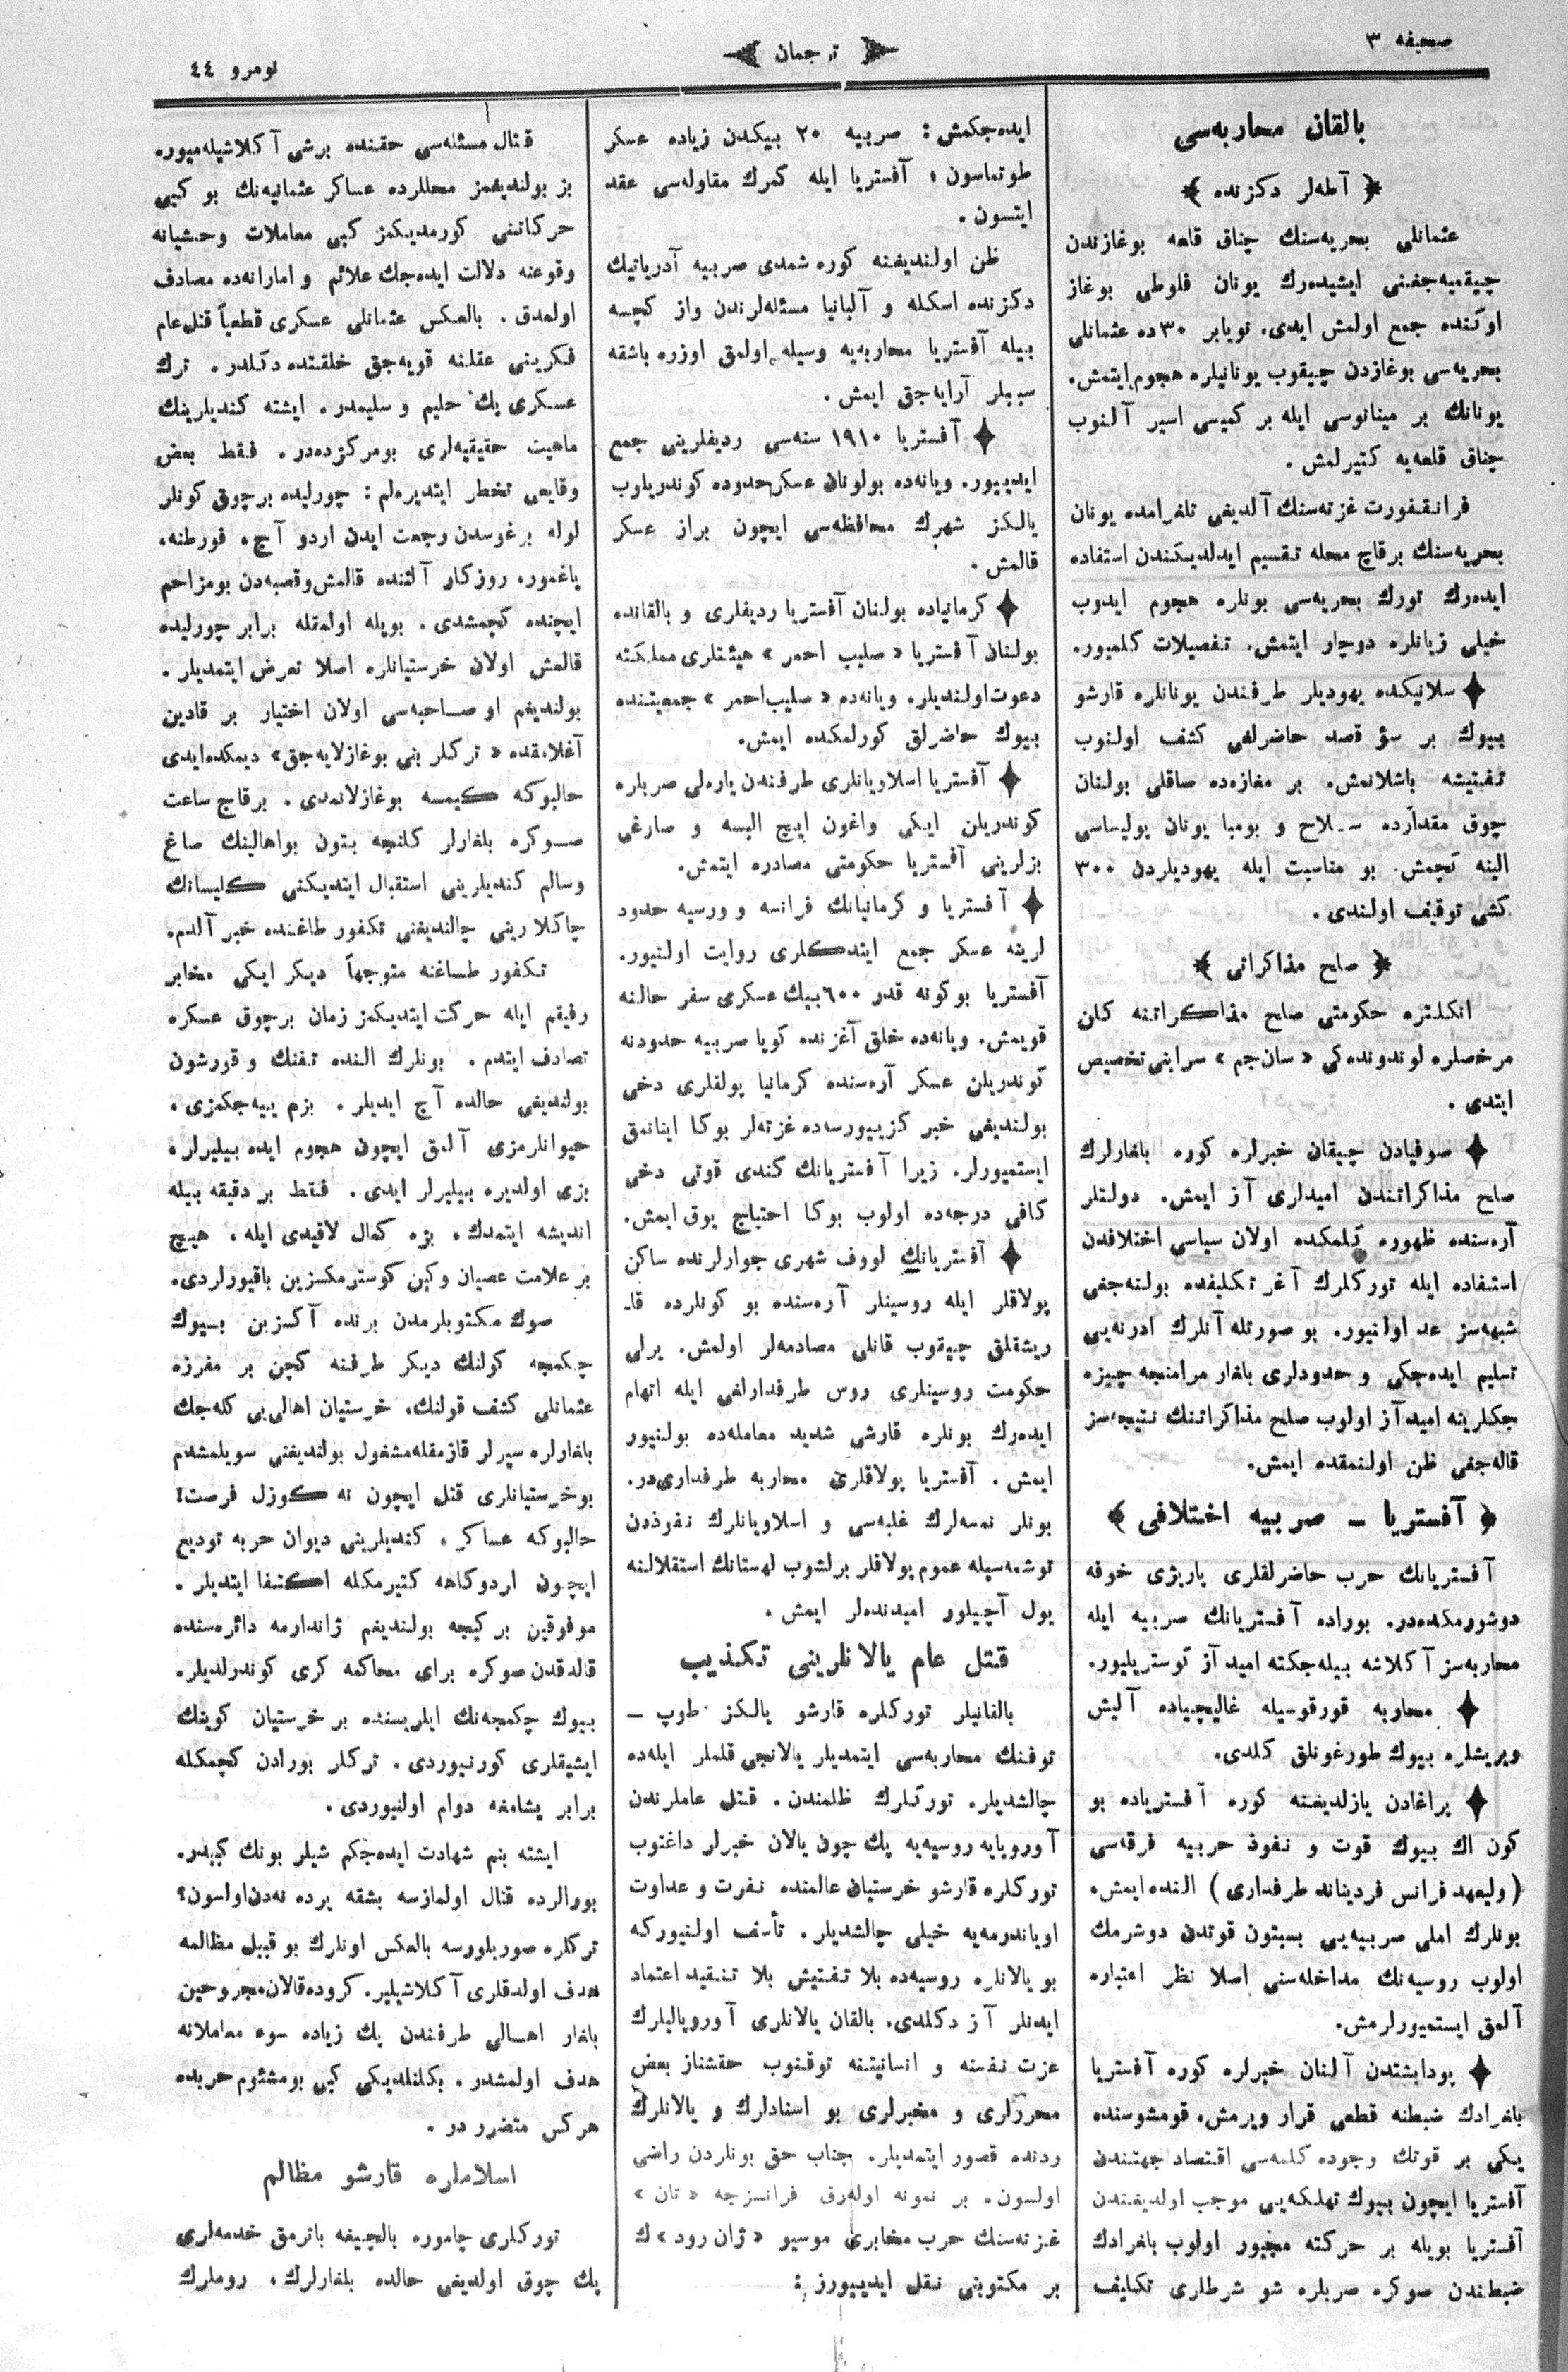 صحیفه ٣
ترجمان
نومرو ٤٤
بالقان محاربه‌سی
﴿ آطه‌لر دكزنده ﴾
عثمانلی بحریه‌سنك چناق قلعه بوغازندن
چیقمیه‌جغنی ایشیده‌رك یونان فلوطی بوغاز
اوكنده جمع اولمش ایدی. نویابر ٣٠ ده عثمانلی
بحریه‌سی بوغازدن چیقوب یونانیلره هجوم ایتمش.
یونانك بر مینانوسی ایله بر كمیسی اسیر آلنوب
چناق قلعه‌یه كتیرلمش.
فرانقفورت غزته‌سنك آلدیغی تلغرامده یونان
بحریه‌سنك برقاچ محله تقسیم ایدلدیكندن استفاده
ایده‌رك تورك بحریه‌سی بونلره هجوم ایدوب
خیلی زیانلره دوچار ایتمش. تفصیلات كلمیور.
سلانیكده یهودیلر طرفندن یونانلره قارشو
بیوك بر سؤ قصد حاضرلغی كشف اولنوب
تفتیشه باشلانمش. بر مغازه‌ده صاقلی بولنان
چوق مقدارده سلاح و بومبا یونان پولیساسی
الینه كچمش. بو مناسبت ایله یهودیلردن ٣٠٠
كشی توقیف اولندی.
﴿ صلح مذاكراتی ﴾
انكلتره حكومتی صلح مذاكراتنه كلن
مرخصلره لوندونده‌كی «سان جم» سراینی تخصیص
ایتدی.
صوفیادن چیقان خبرلره كوره بلغارلرك
صلح مذاكراتندن امیدلری آز ایمش. دولتلر
آره‌سنده ظهوره كلمكده اولان سیاسی اختلافدن
استفاده ایله توركلرك آغر تكلیفده بولنه‌جغی
شبهه‌سز عد اولنیور. بو صورتله آنلرك ادرنه‌یی
تسلیم ایده‌جكی و حدودلری بلغار مرامنجه چیزه
جكلرینه امید آز اولوب صلح مذاكراتنك نتیجه‌سز
قاله‌جغی ظن اولنمقده ایمش.
﴿ آفستریا ــ صربیه اختلافی ﴾
آفستریانك حرب حاضرلقلری پاریژی خوفه
دوشورمكده‌در. بوراده آفستریانك صربیه ایله
محاربه‌سز آكلاشه بیله‌جكنه امید آز كوستریلیور.
محاربه قورقوسیله غالیچیاده آلیش
ویریشلره بیوك طورغونلق كلدی.
پراغادن یازلدیغنه كوره آفستریاده بو
كون اك بیوك قوت و نفوذ حربیه فرقه‌سی
(ولیعهد فرانس فردیناند طرفداری) النده ایمش.
بونلرك املی صربیه‌یی بسبتون قوتدن دوشرمك
اولوب روسیه‌نك مداخله‌سنی اصلا نظر اعتباره
آلمق ایستمیورلرمش.
پودابشتدن آلنان خبرلره كوره آفستریا
بلغرادك ضبطنه قطعی قرار ویرمش. قومشوسنده
یكی بر قوتك وجوده كلمه‌سی اقتصاد جهتندن
آفستریا ایچون بیوك تهلكه‌یی موجب اولدیغندن
آفستریا بویله بر حركته مجبور اولوب بلغرادك
ضبطندن صوكره صربلره شو شرطلری تكلیف
ایده‌جكمش: صربیه ٢٠ بیكدن زیاده عسكر
طوتماسون، آفستریا ایله كمرك مقاوله‌سی عقد
ایتسون.
ظن اولندیغنه كوره شمدی صربیه آدریاتیك
دكزنده اسكله و آلبانیا مسئله‌لرندن واز كچسه
بیله آفستریا محاربه‌یه وسیله اولمق اوزره باشقه
سببلر آرایه‌جق ایمش.
آفستریا ١٩١٠ سنه‌سی ردیفلرینی جمع
ایدییور. ویانه‌ده بولونان عسكر حدوده كوندریلوب
یالكز شهرك محافظه‌سی ایچون براز عسكر
قالمش.
كرمانیاده بولنان آفستریا ردیفلری و بالقانده
بولنان آفستریا «صلیب احمر» هیئتلری مملكته
دعوت اولندیلر. ویانه‌ده «صلیب احمر» جمعیتنده
بیوك حاضرلق كورلمكده ایمش.
آفستریا اسلاویانلری طرفندن یاره‌لی صربلره
كوندریلن ایكی واغون ایچ البسه و صارغی
بزلرینی آفستریا حكومتی مصادره ایتمش.
آفستریا و كرمانیانك فرانسه و روسیه حدود
لرینه عسكر جمع ایتدكلری روایت اولنیور.
آفستریا بوكونه قدر ٦٠٠ بیك عسكری سفر حالنه
قویمش. ویانه‌ده خلق آغزنده كویا صربیه حدودنه
كوندریلن عسكر آره‌سنده كرمانیا پولقلری دخی
بولندیغی خبر كزییورسه‌ده غزته‌لر بوكا اینانمق
ایستمیورلر. زیرا آفستریانك كندی قوتی دخی
كافی درجه‌ده اولوب بوكا احتیاج یوق ایمش.
آفستریانك لووف شهری جوارلرنده ساكن
پولاقلر ایله روسینلر آره‌سنده بو كونلرده قا-
ریشقلق چیقوب قانلی مصادمه‌لر اولمش. یرلی
حكومت روسینلری روس طرفدارلغی ایله اتهام
ایده‌رك بونلره قارشی شدید معامله‌ده بولنیور
ایمش. آفستریا پولاقلری محاربه طرفداری‌در.
بونلر نمسه‌لرك غلبه‌سی و اسلاویانلرك نفوذدن
توشمه‌سیله عموم پولاقلر برلشوب لهستانك استقلالنه
یول آچیلور امیدنده‌لر ایمش.
قتل عام یالانلرینی تكذیب
بالقانیلر توركلره قارشو یالكز طوپ ــ
توفنك محاربه‌سی ایتمدیلر یالانجی قلملر ایله‌ده
چالشدیلر. توركلرك ظلمندن، قتل عاملرندن
آوروپایه روسیه‌یه پك چون یالان خبرلر داغتوب
توركلره قارشو خرستیان عالمنده نفرت و عداوت
اویاندرمه‌یه خیلی چالشدیلر. تأسف اولنیوركه
بو یالانلره روسیه‌ده بلا تفتیش بلا تنقید اعتماد
ایدنلر آز دكلدی. بالقان یالانلری آوروپالیلرك
عزت نفسنه و انسانیتنه توقنوب حقشناز بعض
محررلری و مخبرلری بو اسنادلرك و یالانلرك
ردنده قصور ایتمدیلر. جناب حق بونلردن راضی
اولسون. بر نمونه اوله‌رق فرانسزجه «تان»
غزته‌سنك حرب مخابری موسیو «ژان رود» ك
بر مكتوبنی نقل ایدییورز:
قتال مسئله‌سی حقنده برشی آكلاشیله‌میور.
بز بولندیغمز محللرده عساكر عثمانیه‌نك بو كبی
حركاتنی كورمدیكمز كبی معاملات وحشیانه
وقوعنه دلالت ایده‌جك علائم و اماراته‌ده مصادف
اولمدق. بالعكس عثمانلی عسكری قطعیاً قتل عام
فكرینی عقلنه قویه‌جق خلقتده دكلدر. ترك
عسكری پك حلیم و سلیمدر. ایشته كندیلرینك
ماهیت حقیقیه‌لری بومركزده‌در. فقط بعض
وقایعی تخطر ایتدیره‌لم: چورلیده برچوق كونلر
لوله برغوسدن رجعت ایدن اردو آچ، فورطنه،
یاغمور، روزكار آلتنده قالمش و قصبه‌دن بومزاحم
ایچنده كچمشدی. بویله اولمقله برابر چورلیده
قالمش اولان خرستیانلره اصلا تعرض ایتمدیلر.
بولندیغم او صاحبه‌سی اولان اختیار بر قادین
آغلامقده «تركلر بنی بوغازلایه‌جق» دیمكده‌ایدی
حالبوكه كیمسه بوغازلانمدی. برقاچ ساعت
صوكره بلغارلر كلنجه بتون بواهالینك صاغ
وسالم كندیلرینی استقبال ایتدیكنی كلیسانك
چاكلارینی چالندیغنی تكفور طاغنده خبر آلدم.
تكفور طاغنه متوجهاً دیكر ایكی مخابر
رفیقم ایله حركت ایتدیكمز زمان برچوق عسكره
تصادف ایتدم. بونلرك النده تفنك و قورشون
بولندیغی حالده آچ ایدیلر. بزم ییه‌جكمزی،
حیوانلرمزی آلمق ایچون هجوم ایده بیلیرلر،
بزی اولدیره بیلیرلر ایدی. فقط بر دقیقه بیله
اندیشه ایتمدك، بزه كمال لاقیدی ایله، هیچ
بر علامت عصیان وكین كوسترمكسزین باقیورلردی.
صوك مكتوبلرمدن برنده آكسزین بیوك
چكمجه كولنك دیكر طرفنه كچن بر مفرزه
عثمانلی كشف قولنك، خرستیان اهالی‌یی كله‌جك
بلغارلره سپرلر قازمقله مشغول بولندیغنی سویلمشدم
بوخرستیانلری قتل ایچون نه كوزل فرصت!
حالبوكه عساكر، كندیلرینی دیوان حربه تودیع
ایچون اردوكاهه كتیرمكله اكتفا ایتدیلر.
موقوفین بر كیجه بولندیغم ژاندارمه دائره‌سنده
قالدقدن صوكره برای محاكمه كری كوندرلدیلر.
بیوك چكمجه‌نك ایلریسنده بر خرستیان كوینك
ایشیقلری كورنیوردی. تركلر بورادن كچمكله
برابر یشامغه دوام اولنیوردی.
ایشته بنم شهادت ایده‌جكم شیلر بونك كبیدر.
بورالرده قتال اولمازسه بشقه یرده نه‌دن اولسون؟
تركلره صوریلورسه بالعكس اونلرك بو قبیل مظالمه
هدف اولدقلری آكلاشیلیر. كروده قالان مجروحین
بلغار اهالی طرفندن پك زیاده سوء معاملاته
هدف اولمشدر. بكلنلدیكی كبی بومشئوم حربده
هركس متضرر در.
اسلاملره قارشو مظالم
توركلری چاموره بالچیغه باترمق خدمه‌لری
پك چوق اولدیغی حالده بلغارلرك، روملرك